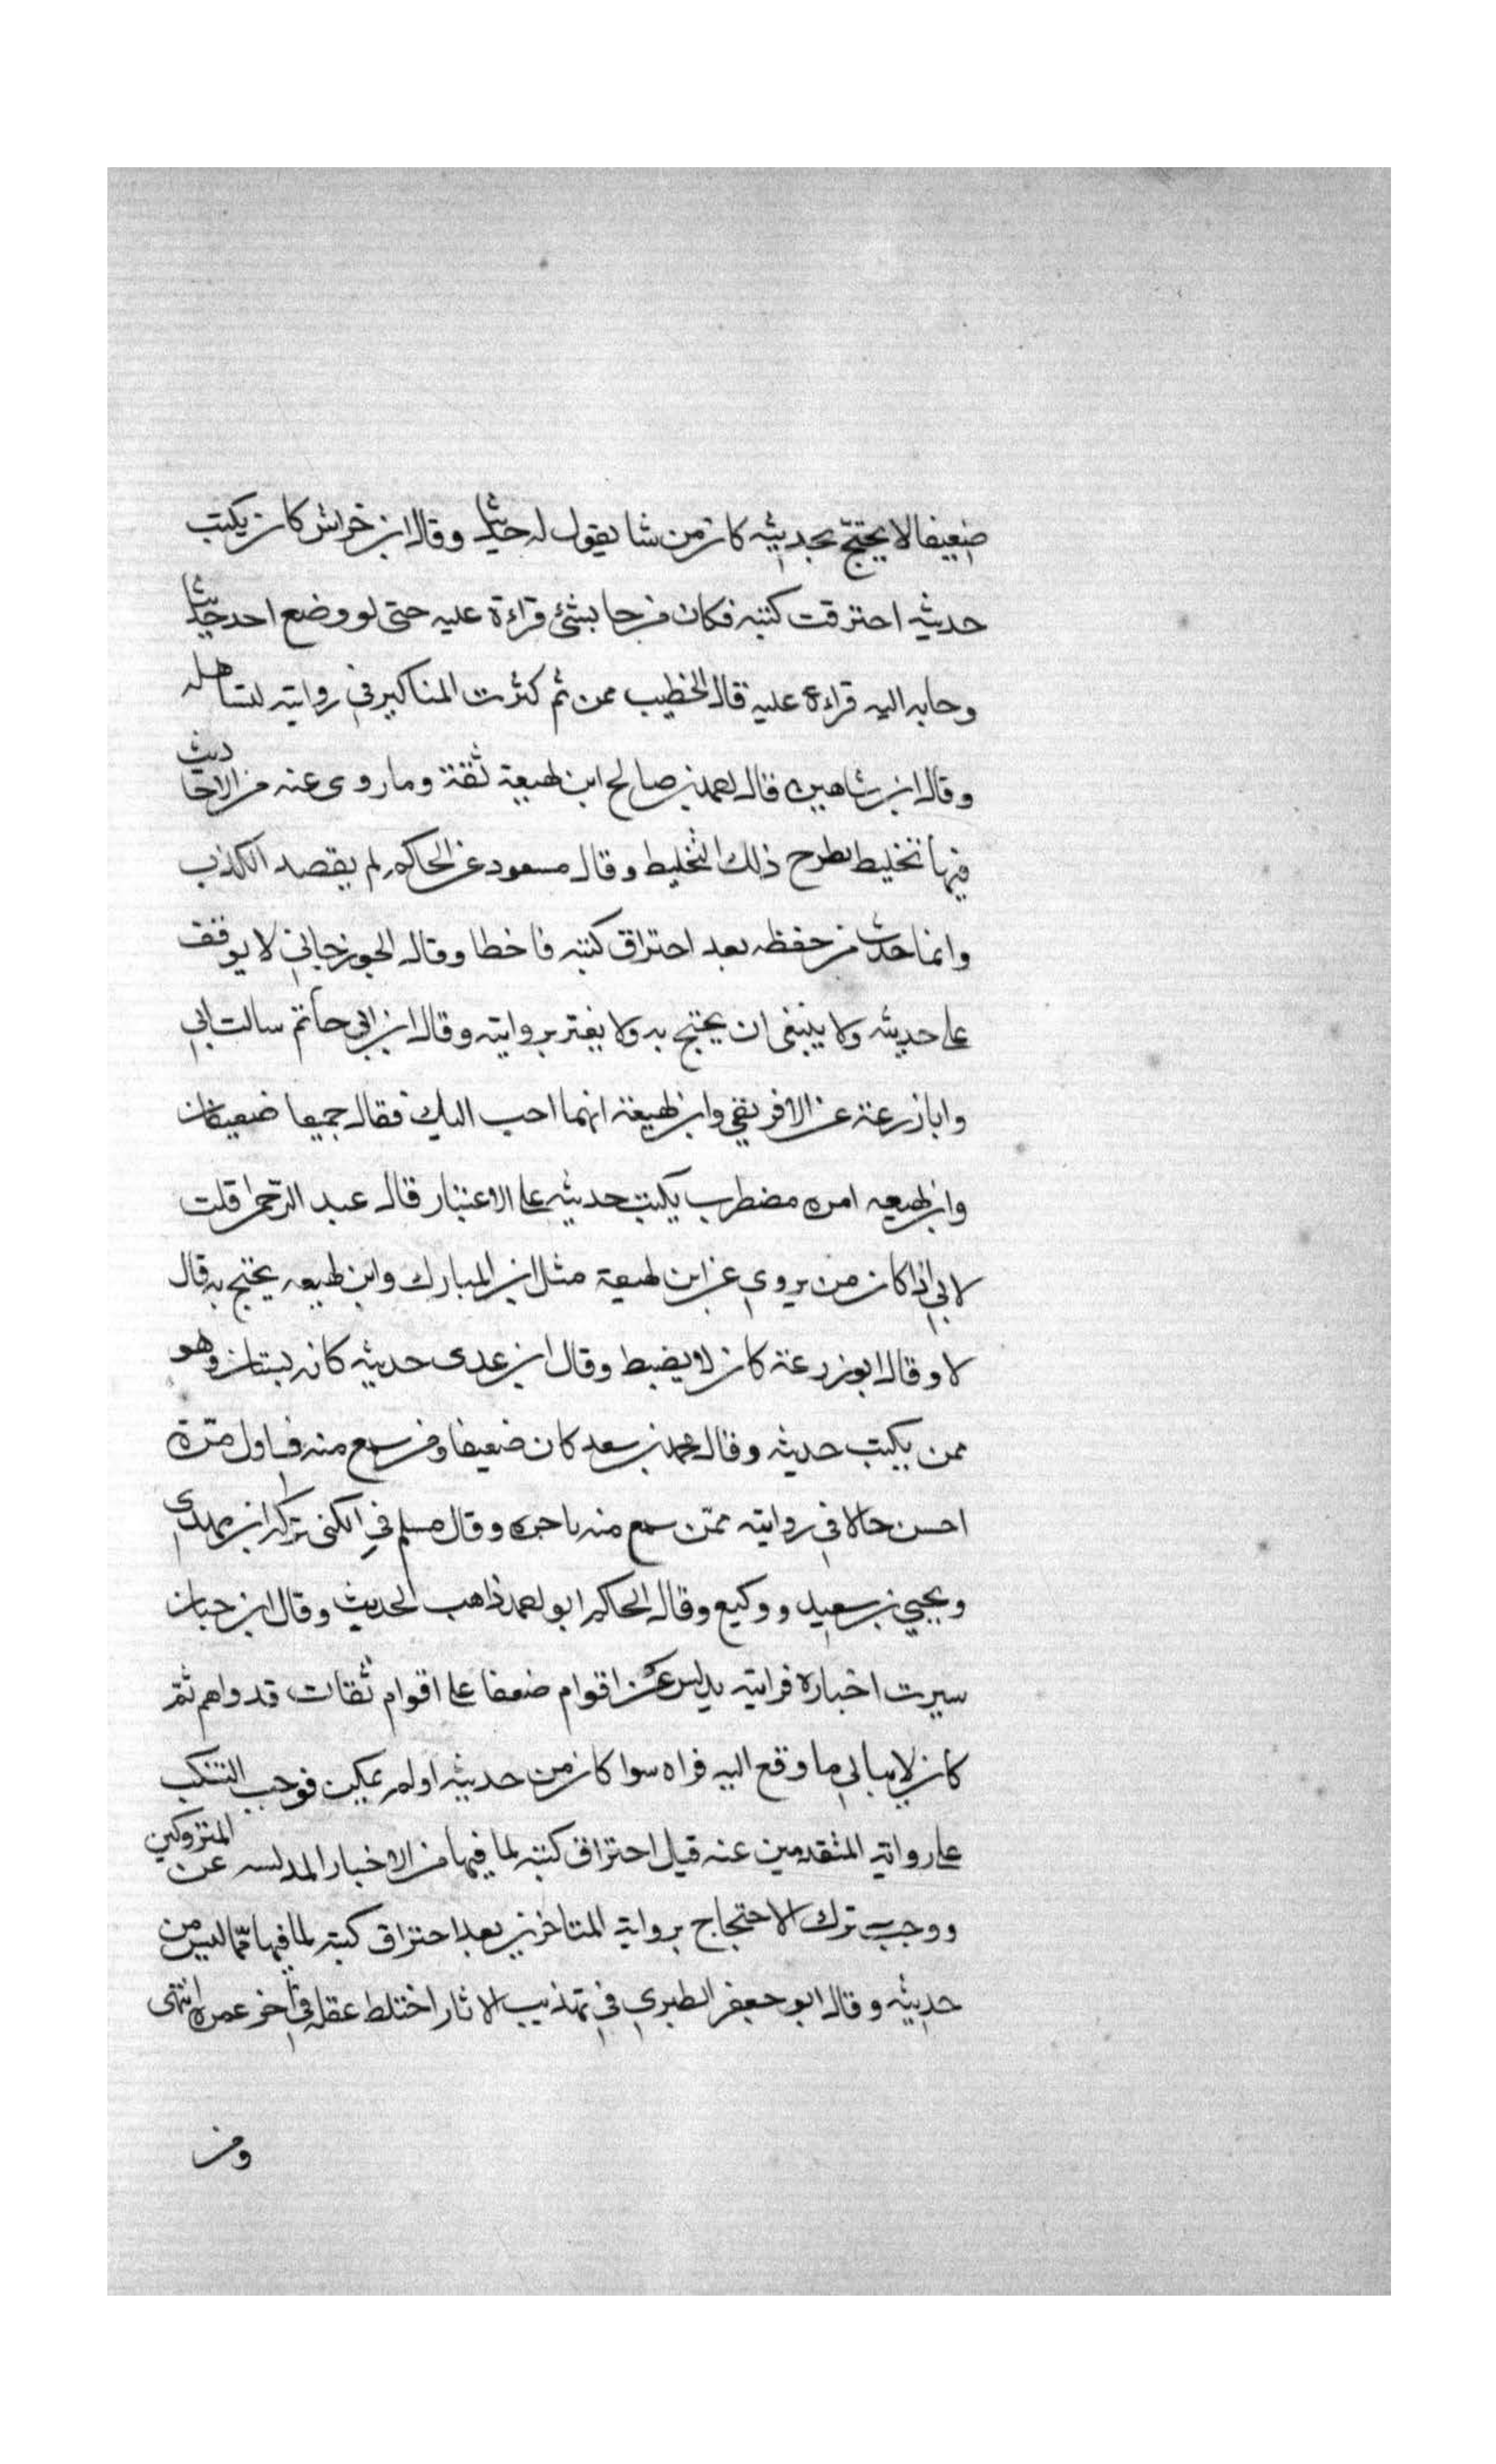 ضعيفا لا يحتجّ بحديثه كان من شا يقول له حدثنا وقال ابن خراش كان يكتب
حديثه احترقت كتبه فكان من جا بشئ قراءة عليه حتى لو وضع احد حديثا
وجابه اليه قراءة عليه قال الخطيب ممن ثم كثرت المناكير في روايته لتساهله
وقال ابن شاهين قال احمد بن صالح ابن لهيعة ثقة وما روى عنه من الاحاديث
فيها تخليط يطرح ذلك التخليط وقال مسعود عن الحاكم لم يقصد الكذب
وانما حدث من حفظه بعد احتراق كتبه فاخطا وقال الجوزجاني لا يوقف
على حديثه ولا ينبغى ان يحتج به ولا يغتر بروايته وقال ابن ابي حاتم سالت ابي
وابا زرعة عن الافريقي وابن لهيعة ايهما احب اليك فقال جميعا ضعيفان
وابن لهيعه امره مضطرب يكتب حديثه على الاعتبار قال عبد الرحمن قلت
لابي اذا كان من يروي عن ابن لهيعة مثل ابن المبارك وابن لهيعه يحتج به قال
لا وقال ابو زرعة كان لا يضبط وقال ابن عدى حديثه كانه بستان وهو
ممن يكتب حديثه وقال محمد بن سعد كان ضعيفا ومن سمع منه في اول مرّة
احسن حالا في روايته ممّن سمع منه باخره وقال مسلم في الكنى تركه ابن مهدي
ويحيي بن سعيد ووكيع وقال الحاكم ابو احمد ذاهب الحديث وقال ابن حبان
سيرت اخباره فرايته يدلس عن اقوام ضعفا على اقوام ثقات قد راهم ثم
كان لا يبالي ما وقع اليه قراه سوا كان من حديثه او لم يكن فوجب التنكب
على رواية المتقدمين عنه قبل احتراق كتبه لما فيها من الاخبار المدلسه عن المتروكين
ووجب ترك الاحتجاج برواية المتاخرين بعد احتراق كتبه لما فيها ممّا ليس من
حديثه وقال ابو جعفر الطبري في تهذيب الاثار اختلط عقله في آخر عمره انتهى
ومن